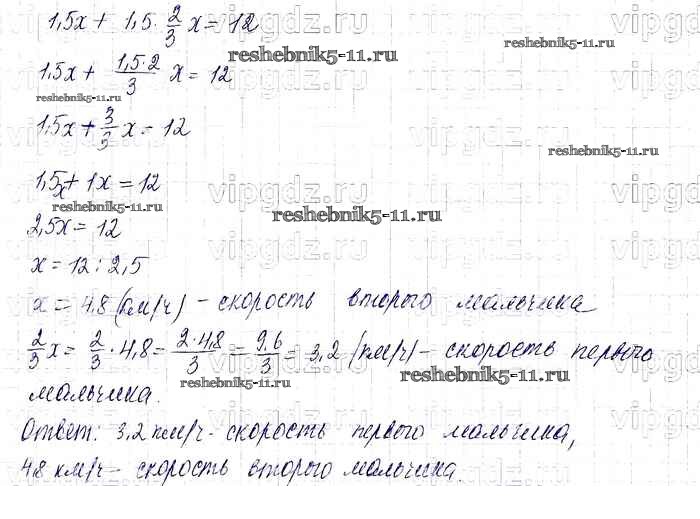 1,5x + 1,5 · 2/3 x = 12
reshebnik5-11.ru
1,5x + 1,5·2/3 x = 12
reshebnik5-11.ru
1,5x + 3/3 x = 12
reshebnik5-11.ru
1,5x + 1x = 12
reshebnik5-11.ru
reshebnik5-11.ru
2,5x = 12
x = 12 : 2,5
x = 4,8 (км/ч) – скорость второго мальчика
2/3 x = 2/3 · 4,8 = 2·4,8/3 = 9,6/3 = 3,2 (км/ч) – скорость первого
reshebnik5-11.ru
reshebnik5-11.ru
мальчика.
Ответ: 3,2 км/ч - скорость первого мальчика,
4,8 км/ч – скорость второго мальчика.
vipgdz.ru